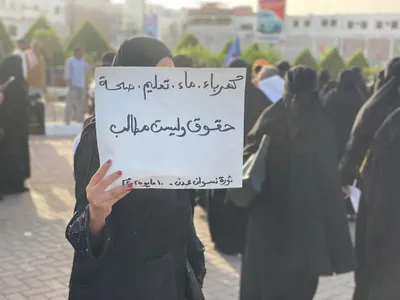 كهرباء. ماء. تعليم. صحة
حقوق وليست مطالب
ثورة نسوان عدن - ١٠ مايو ٢٠٢٥